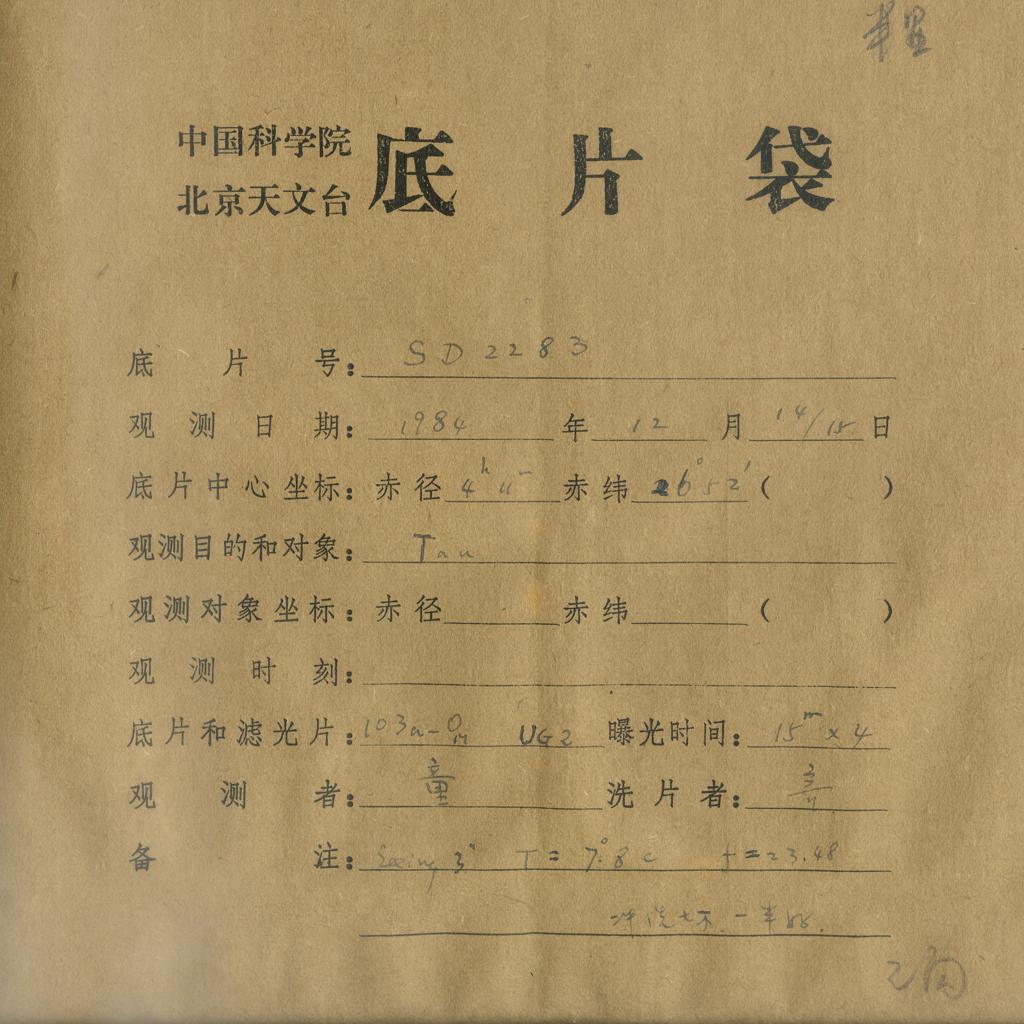 中国科学院
北京天文台
底片袋
底片号: SD2283
观测日期: 1984年12月14/15日
底片中心坐标: 赤径 4h 11m 赤纬 26°52′ ( )
观测目的和对象: Tau
观测对象坐标: 赤径 赤纬 ( )
观测时刻:
底片和滤光片: 103a-O UG2 曝光时间: 15m×4
观测者: 童 洗片者:
备注: Seeing 3" T=7°.8c f=23.48
冲洗坏,一半好.